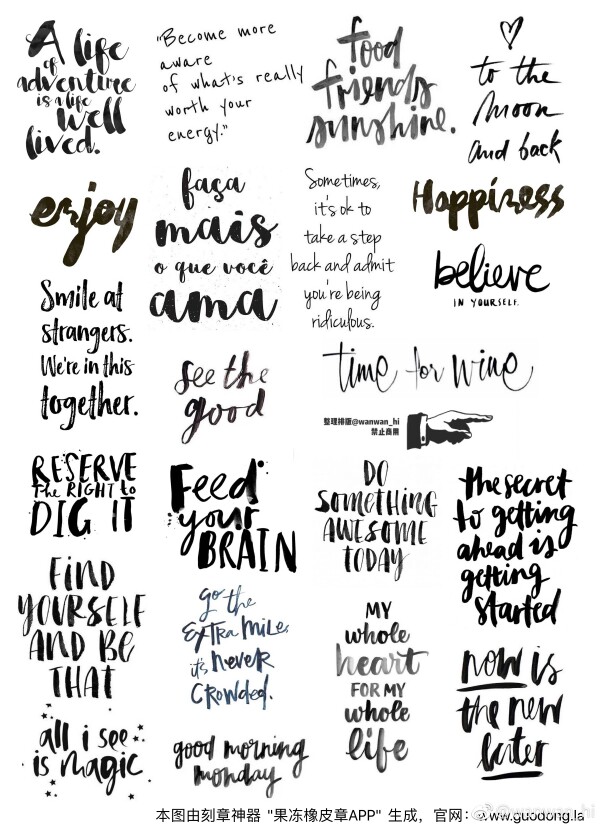 A life
of
adventure
is a life
well
lived.
"Become more
aware
of what's really
worth your
energy."
food
friends
sunshine.
to the
moon
and back
enjoy
faça
mais
o que você
ama
Sometimes,
it's ok to
take a step
back and admit
you're being
ridiculous.
Happiness
believe
IN YOURSELF.
Smile at
strangers.
We're in this
together.
see the
good
time for wine
整理排版@wanwan_hi
禁止商用
RESERVE
THE RIGHT to
DIG IT
Feed
your
BRAIN
DO
SOMETHING
AWESOME
TODAY
the secret
to getting
ahead is
getting
started
FIND
YOURSELF
AND BE
THAT
go the
EXTRA MILE,
it's NEVER
CROWDED.
MY
whole
heart
FOR MY
whole
life
now is
the new
later
all i see
is magic
good morning
monday
本图由刻章神器 "果冻橡皮章APP" 生成，官网：www.guodong.la
@wanwan_hi